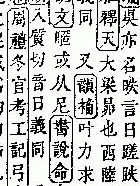 亦名映言日蹉
爾天大梁昴也西陸
義同　又韻補叶力求
文或从足　書說命
入質切音日義同
周禮冬官考工記弓